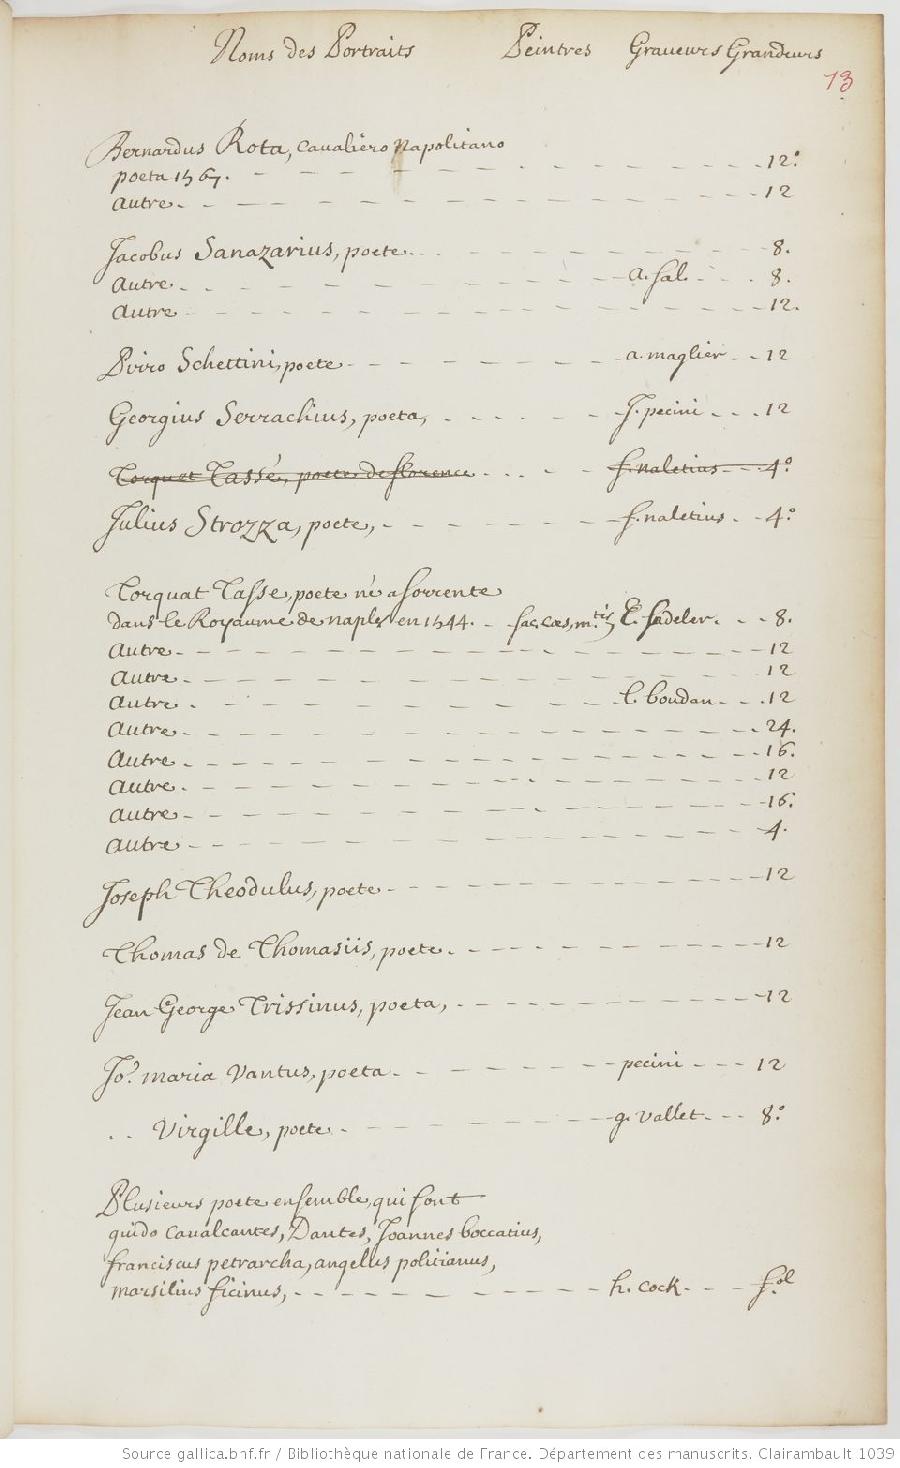 Noms des Portraits Peintres Graueurs Grandeurs
73
Bernardus Rota, Caualiero Napolitano
poeta 1567. - - - - - - - - - - 12.º
autre - - - - - - - - - - 12
Jacobus Sanazarius, poete - - - - - - 8.
autre - - - - - - a. sal. - - 8.
autre - - - - - - - - - - 12.
Pirro Schettini, poete - - - - - a. maglier - - 12
Georgius Serrachius, poeta, - - - - J. pecini - - - 12
Torquat Tasse, poete de florence - - - - f. naletius - - - 4.º
Julius Strozza, poete, - - - - - f. naletius - - 4.º
Torquat Tasse, poete né a Sorrente
dans le Royaume de naples en 1544. - sac. cæs. m.tis E. sadeler. - - 8.
autre - - - - - - - - - - 12
autre - - - - - - - - - - 12
autre - - - - - - l. boudan - - 12
autre - - - - - - - - - - 24.
autre - - - - - - - - - - 16.
autre - - - - - - - - - - 12
autre - - - - - - - - - - 16.
autre - - - - - - - - - - 4.
Joseph Theodulus, poete - - - - - - - 12
Thomas de Thomasiis, poete - - - - - - 12
Jean George Trissinus, poeta, - - - - - - 12
Jo. maria Vantus, poeta - - - - - pecini - - - 12
. . Virgille, poete - - - - - g. vallet - - 8.º
Plusieurs poete ensemble, qui sont
guido Caualcantes, Dantes, Joannes boccatius,
franciscus petrarcha, angelus politianus,
marsilius ficinus, - - - - - - h. cock - - - fol
Source gallica.bnf.fr / Bibliothèque nationale de France. Département des manuscrits. Clairambault 1039